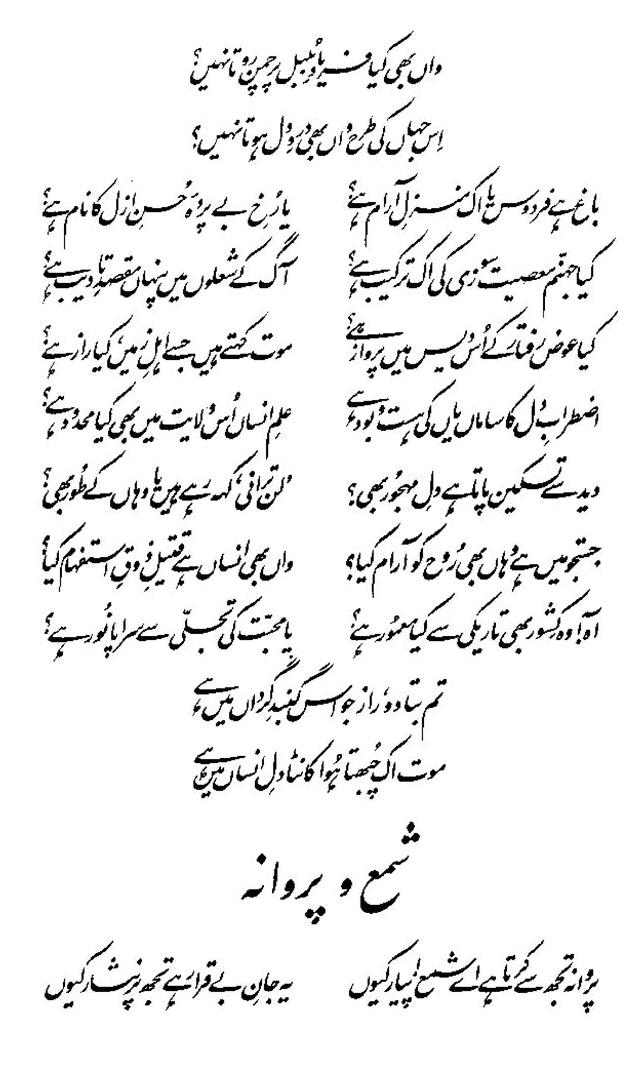 واں بھی کیا فریادِ بلبل پر چمن روتا نہیں؟
اِس جہاں کی طرح واں بھی دردِ دل ہوتا نہیں؟
باغ ہے فردوس یا اک منزلِ آرام ہے؟ یا رُخِ بے پردۂ حُسنِ ازل کا نام ہے؟
کیا جہنّم معصیت سوزی کی اک ترکیب ہے؟ آگ کے شعلوں میں پنہاں مقصدِ تادیب ہے؟
کیا عوض رفتار کے اُس دیس میں پرواز ہے؟ موت کہتے ہیں جسے اہلِ زمیں، کیا راز ہے؟
اضطرابِ دل کا ساماں یاں کی ہست و بود ہے علمِ انساں اُس ولایت میں بھی کیا محدود ہے؟
دید سے تسکین پاتا ہے دلِ مہجور بھی؟ 'لن ترانی' کہہ رہے ہیں یا وہاں کے طُور بھی؟
جستجو میں ہے وہاں بھی رُوح کو آرام کیا؟ واں بھی انساں ہے قتیلِ ذوقِ استفہام کیا؟
آہ! وہ کشور بھی تاریکی سے کیا معمور ہے؟ یا محبّت کی تجلّی سے سراپا نُور ہے؟
تم بتا دو، راز جو اس گنبدِ گرداں میں ہے
موت اک چُبھتا ہُوا کانٹا دلِ انساں میں ہے
شمع و پروانہ
پروانہ تجھ سے کرتا ہے اے شمع! پیار کیوں یہ جانِ بے قرار ہے تجھ پر نثار کیوں